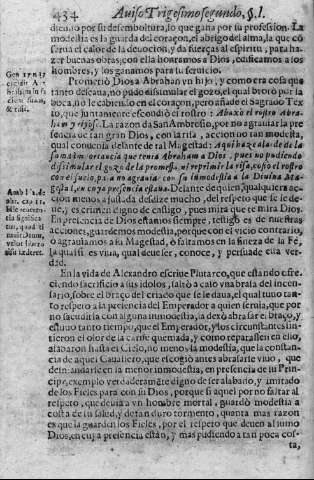 434 Auiso Trigesimo segundo, §. I.
dieno por su desemboltura, lo que gana por su profession. La
modestia es la guarda del coraçon, el abrigo del alma, la que cō
serua el calor de la deuocion, y da fuerças al espiritu, para ha-
zer buenas obras, con ella honramos a Dios, edificamos a los
hombres, y los ganamos para su seruicio.
Prometiò Dios a Abrahan vn hijo, y como era cosa que
tanto deseaua, no pudo dissimular el gozo, el qual brotò por la
boca, no le cabiendo en el coraçon, pero añade el Sagrado Tex-
to, que juntamente escondiò el rostro: Abaxò el rostro Abra-
han y riòse. La razon da San Ambrosio, por no agrauiar la pre
sencia de tan gran Dios, con la risa, accion no tan modesta,
qual conuenia delante de tal Magestad: Aqui haze alarde de la
suma importancia que tenia Abraham a Dios, pues no pudiendo
dissimular el gozo de la promessa, ni reprimir la risa,
por no agrauiar con su inmodestia a la Diuina Ma-
gestad, en cuya presencia estaua. Delante de quien, qualquiera ac
cion menos ajustada desdize mucho, del respeto que se le de-
ue, y es crimen digno de castigo, pues mira que te mira Dios.
En presencia de Dios estamos siempre, testigo es de nuestras
acciones, guardemos modestia, porque con el vicio contrario,
ò agrauiamos a su Magestad, ò faltamos en la fineza de la Fè,
la qual si es viua, qual deue ser, conoce, y persuade esta ver-
dad.
En la vida de Alexandro escriue Plutarco, que estando ofre-
ciendo sacrificio a sus idolos, saltò a caso vna brasa del incen-
sario, sobre el braço del criado que se le daua, el qual tuuo tan-
to respeto a la presencia del Emperador a quien seruia, que por
no sacudirla con alguna inmodestia, la dexò abrasar el braço, y
estuuo tanto tiempo, que el Emperador, y los circunstantes sin-
tieron el olor de la carne quemada, y como reparassen en ello,
alabaron hasta el Cielo, no menos la modestia, que la constan-
cia de aquel Cauallero, que escogiò antes abrasarse viuo, que
desmandarse en la menor inmodestia, en presencia de su Prin-
cipe, exemplo verdaderamẽte digno de ser alabado, y imitado
de los Fieles para con su Dios, porque si aquel por no faltar al
respeto, que deuia a vn hombre mortal, guardò modestia a
costa de su salud, y de tan duro tormento, quanta mas razon
es que la guarden los Fieles, por el respeto que deuen al sumo
Dios, en cuya presencia están, y mas pudiendo a tan poca cos-
ta,
Gen 17. n. 17